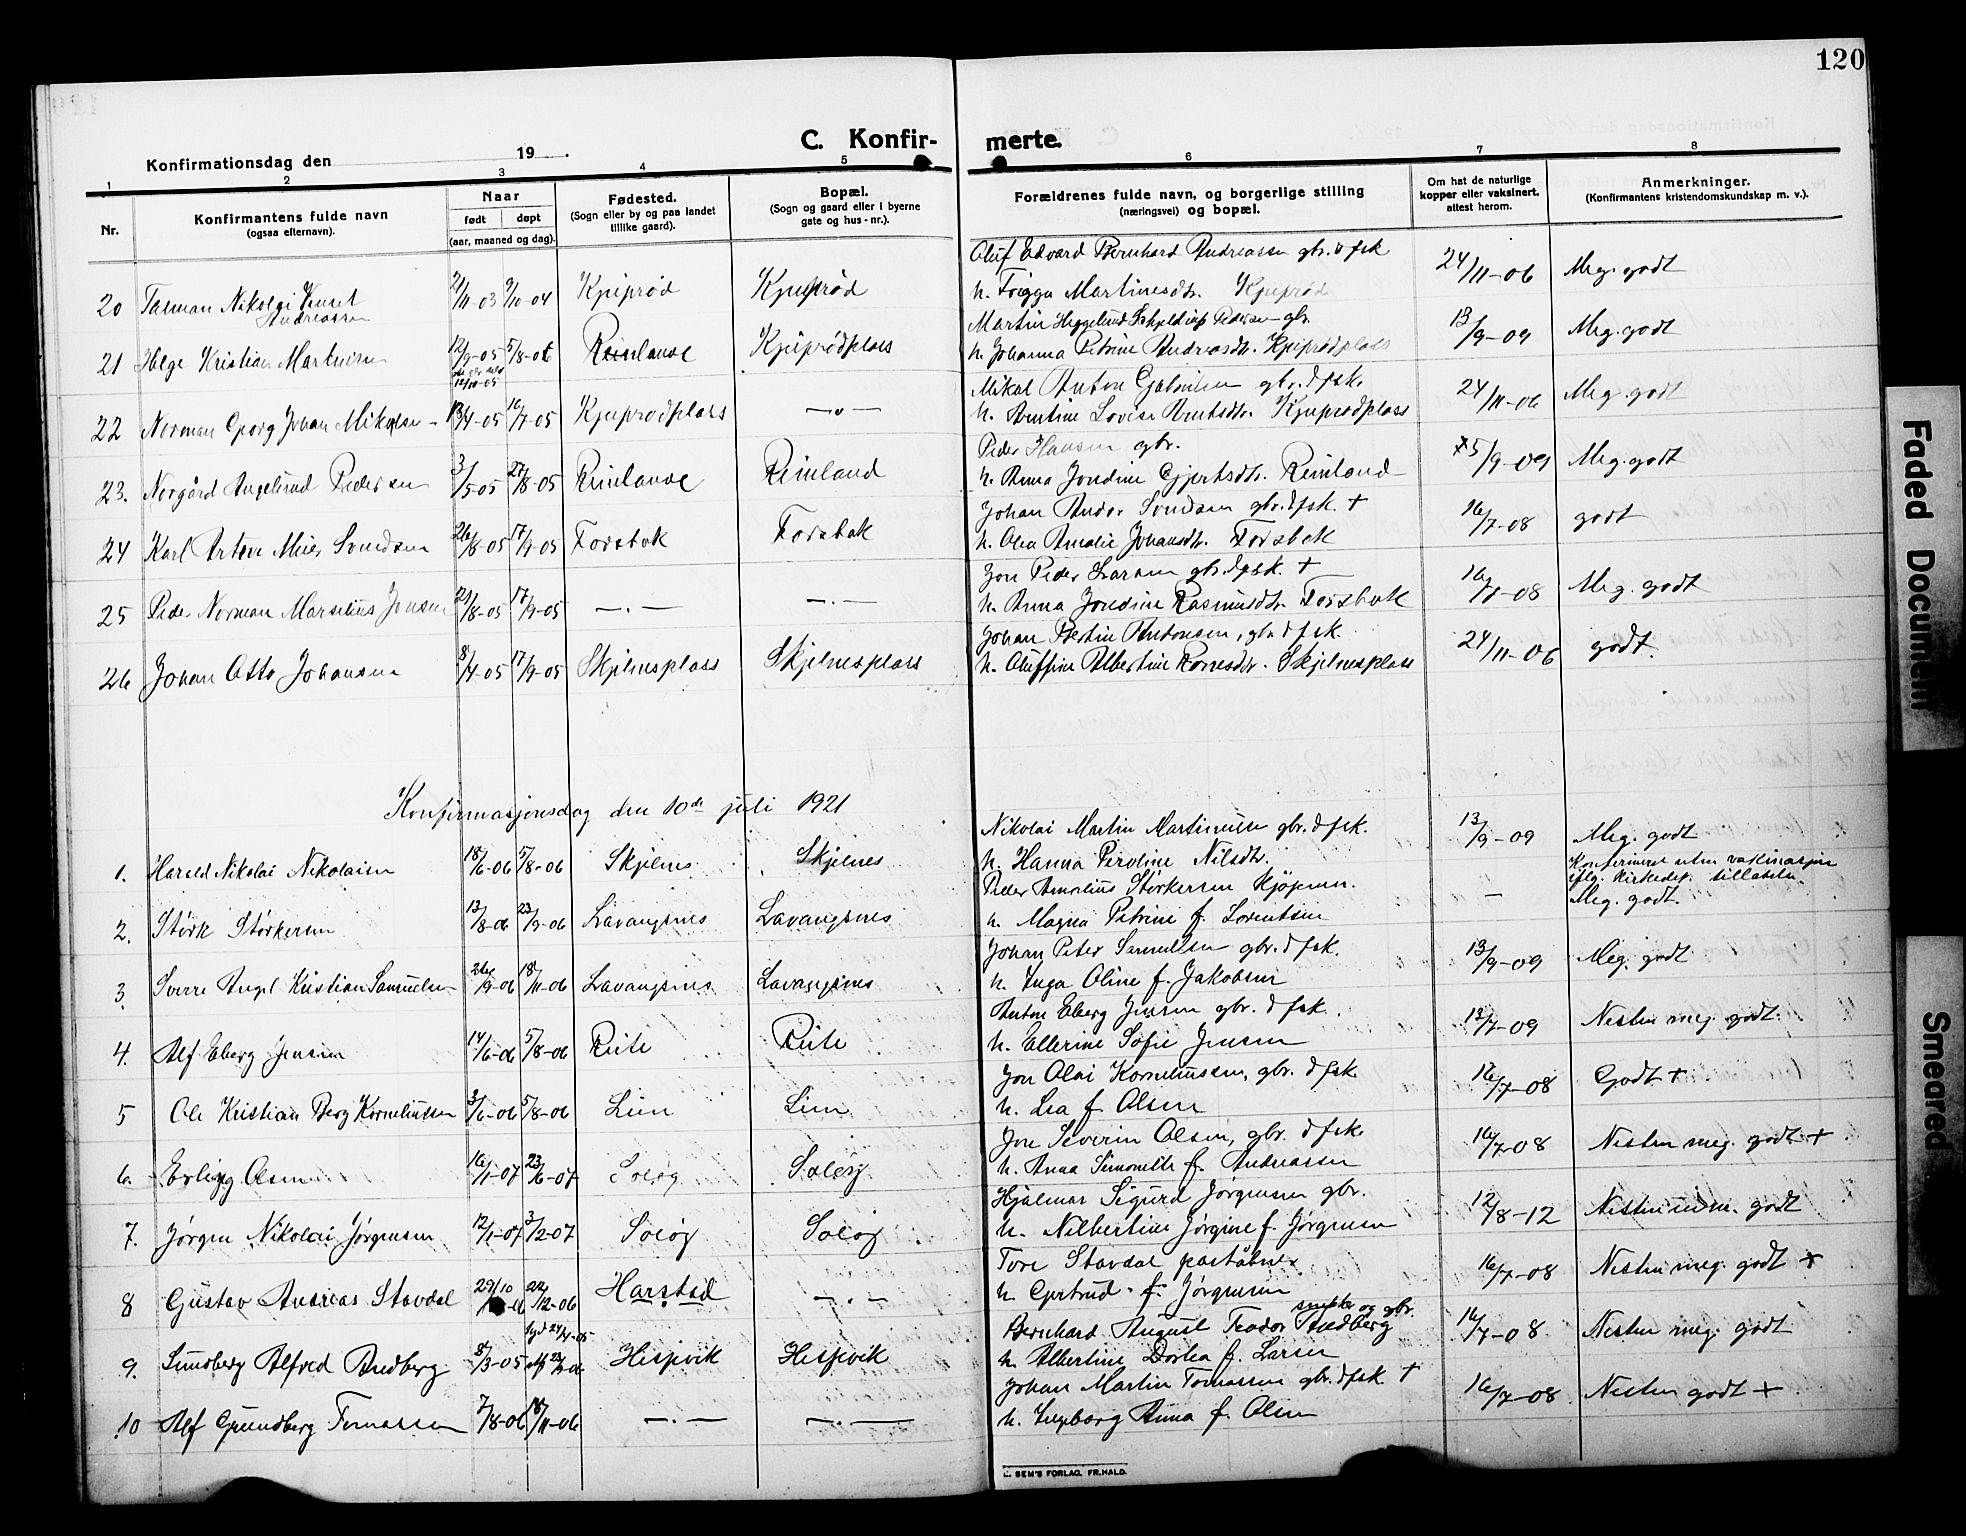 120
C. Konfir- merte.
Konfirmationsdag den 19 .
1 2 3 4 5 6 7 8
Nr.
Konfirmantens fulde navn
(ogsaa efternavn).
Naar
født døpt
(aar, maaned og dag).
Fødested.
(Sogn eller by og paa landet
tillike gaard).
Bopæl.
(Sogn og gaard eller i byerne
gate og hus-nr.).
Forældrenes fulde navn, og borgerlige stilling
(næringsvei) og bopæl.
Om hat de naturlige
kopper eller vaksinert,
attest herom.
Anmerkninger.
(Konfirmantens kristendomskundskap m. v.).
Oluf Edvard Bernhard Andreassen gbr. & fsk
20 Tasman Nikolai Knset Andreassen 21/11-03 9/10-04 Kjuprød Kjuprød h. Frigga Martinesdtr. Kjuprød 24/11-06 Meg. godt
Martin Heggelund Pedersen gbr.
21 Helge Kristian Martinsen 12/9-05 5/8-06 Reinlande Kjuprødplass h. Johanna Petrine Andreasdtr. Kjuprødplass 13/9-09 Meg. godt
12/10-05
Mikal Anton Gabrielsen gbr. & fsk.
22 Norman Georg Johan Mikalsen 13/4-05 16/7-05 Kjuprødplass —„— h. Arntine Lovise Arntsdtr. Kjuprødplass 24/11-06 Meg. godt
Peder Hansen gbr.
23. Norgård Angelund Pedersen 3/5-05 27/8-05 Reinlande Reinland h. Anna Jondine Gjertsdtr. Reinland 5/9-09 Meg. godt
Johan Andor Svendsen gbr. & fsk. +
24 Karl Artur Svendsen 26/8-05 17/9-05 Forsbak Forsbak h. Olea Amalie Johansdtr. Forsbak 16/7-08 godt
Jon Peder Larsen gbr. & fsk. +
25 Peder Norman Marselius Jonsen 21/8-05 17/9-05 —.— —.— h. Anna Jondine Rasmusdtr. Forsbak 16/7-08 Meg. godt
Johan Bertin Antonsen, gbr. & fsk.
26 Johan Otto Johansen 8/4-05 17/9-05 Skjelnesplass Skjelnesplass h. Oluffine Albertine Skjelnesplass 24/11-06 godt.
Konfirmasjonsdag den 10de juli 1921
Nikolai Martin Martinussen gbr. & fsk. 13/9-09 Meg. godt
1. Harald Nikolai Nikolaisen 18/6-06 5/8-06 Skjelnes Skjelnes h. Hanna Peroline Nilsdtr.
Konfirmeret uten vaksinasjon
iflg. kirkedep. tillatelse.
Peder Amalius Størkersen Kjøpmn. — Meg. godt.
2. Størk Størkersen 13/8-06 23/9-06 Lavangsnes Lavangsnes h. Magna Petrine f. Lorentsen
Johan Peter Samuelsen gbr. & fsk. 13/9-09 Meg. godt
3. Sverre Angel Kristian Samuelsen 26/9-06 18/11-06 Lavangsnes Lavangsnes h. Inga Oline f. Jakobsen
Anton Eberg Jensen gbr. & fsk. 13/7-09 Nesten meg. godt.
4. Alf Eberg Jensen 14/6-06 5/8-06 Reite Reite h. Ellerine Sofie Jensen
Jon Olai Korneliussen, gbr. & fsk. 16/7-08 Godt +
5 Ole Kristian Berg Korneliussen 3/6-06 5/8-06 Leim Lim h. Lea f. Olsen
Jon Severin Olsen, gbr. & fsk. 16/7-08 Nesten meg. godt +
6 Erling Olsen 16/1-07 23/6-07 Soløy Soløy h. Anna Simonette f. Andreassen
Hjalmar Sigurd Jørgensen gbr. 12/8-12 Nesten godt
7. Jørgen Nikolai Jørgensen 12/1-07 3/2-07 Soløy Soløy h. Nilbertine Jørgine f. Jørgensen
Tore Stavdal poståbner 16/7-08 Nesten meg. godt +
8 Gustav Andreas Stavdal 29/10-06 24/12-06 Harstad —.— h. Gjertrud f. Jørgensen
snekker og gbr.
Bernhard August Teodor Andberg 16/7-08 Nesten meg. godt
9. Sundberg Alfred Andberg 8/3-05 Hesjevik Hesjevik h. Albertine Dortea f. Larsen
Johan Martin Tomassen gbr. & fsk. + 16/7-08 Nesten godt +
10 Alf Grundberg Tomassen 7/8-06 18/11-06 —.— —.— h. Ingeborg Anna f. Olsen
SEM'S FORLAG, FR.HALD.
Faded Document
Smeared